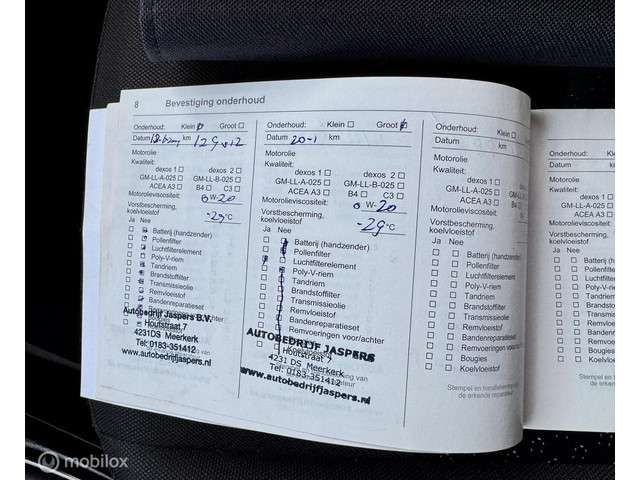 8 Bevestiging onderhoud
Onderhoud: Klein Groot
Datum km
Motorolie
Kwaliteit:
dexos 1 dexos 2
GM-LL-A-025 GM-LL-B-025
ACEA A3 B4 C3
Motorolieviscositeit: 0 W-20
Vorstbescherming,
koelvloeistof -29 °C
Ja Nee
Batterij (handzender)
Pollenfilter
Luchtfilterelement
Poly-V-riem
Tandriem
Brandstoffilter
Transmissieolie
Remvloeistof
Bandenreparatieset
Autobedrijf Jaspers B.V.
Houtstraat 7
4231DS Meerkerk
Tel: 0183-351412
www.autobedrijfjaspers.nl
Onderhoud: Klein Groot
Datum 20-1 km
Motorolie
Kwaliteit:
dexos 1 dexos 2
GM-LL-A-025 GM-LL-B-025
ACEA A3 B4 C3
Motorolieviscositeit: 0 W-20
Vorstbescherming,
koelvloeistof -29 °C
Ja Nee
Batterij (handzender)
Pollenfilter
Luchtfilterelement
Poly-V-riem
Tandriem
Brandstoffilter
Transmissieolie
Remvloeistof
Bandenreparatieset
Remvoeringen voor/achter
AUTOBEDRIJF JASPERS
Houtstraat 7
4231 DS Meerkerk
Tel: 0183-351412
www.autobedrijfjaspers.nl
Onderhoud: Klein
Datum
Motorolie
Kwaliteit:
dexos 1
GM-LL-A-025
ACEA A3
Motorolieviscositeit:
Vorstbescherming,
koelvloeistof
Ja Nee
Batterij (handzender)
Pollenfilter
Luchtfilterelement
Poly-V-riem
Tandriem
Brandstoffilter
Transmissieolie
Remvloeistof
Bandenreparatieset
Remvoeringen voor/achter
Koelvloeistof
Bougies
Stempel en
de erkende reparateur
Onderhoud:
Datum
Motorolie
Kwaliteit:
GM-LL-A
ACEA
Motorolieviscositeit
Vorstbescherming
koelvloeistof
Ja Nee
Batterij (hand
Pollenfilter
Luchtfilterele
Poly-V-riem
Tandriem
Brandstoffilt
Transmissie
Remvloeisto
Bandenrepa
Remvoering
Koelvloeisto
Bougies
Stempel en
de erk
mobilox